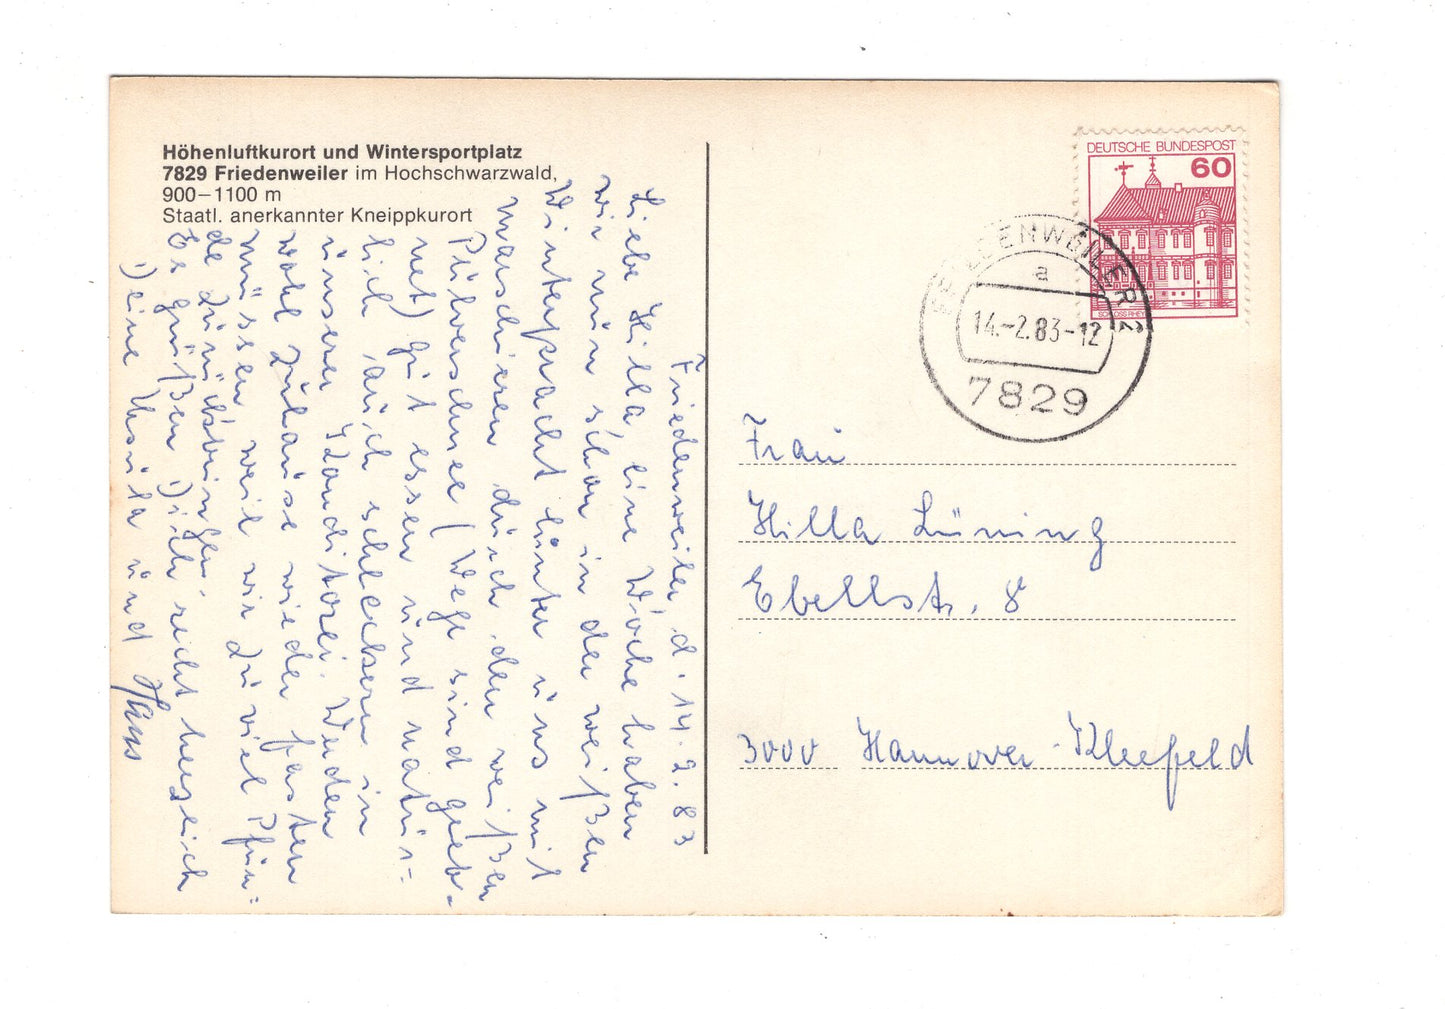 Höhenluftkurort und Wintersportplatz
7829 Friedenweiler im Hochschwarzwald,
900–1100 m
Staatl. anerkannter Kneippkurort
Friedenweiler, d. 14. 2. 83
Liebe Hilla, eine Woche haben
wir nun schon in der weißen
Winterpracht hinter uns mit
marschieren durch den weißen
Pulverschnee (Wege sind geeb-
net) gut essen und natür=
lich auch schleckern in
unserer Konditorei. Werden
wohl zuhause wieder fasten
müssen weil wir zuviel Pfun=
de zurückbringen.
Es grüßen Dich recht herzlich
Deine Ursula und Hans
DEUTSCHE BUNDESPOST
60
SCHLOSS RHEYDT
FRIEDENWEILER
a
14.-2.83-12
7829
Frau
Hilla Lüning
Ebellstr. 8
3000 Hannover-Kleefeld